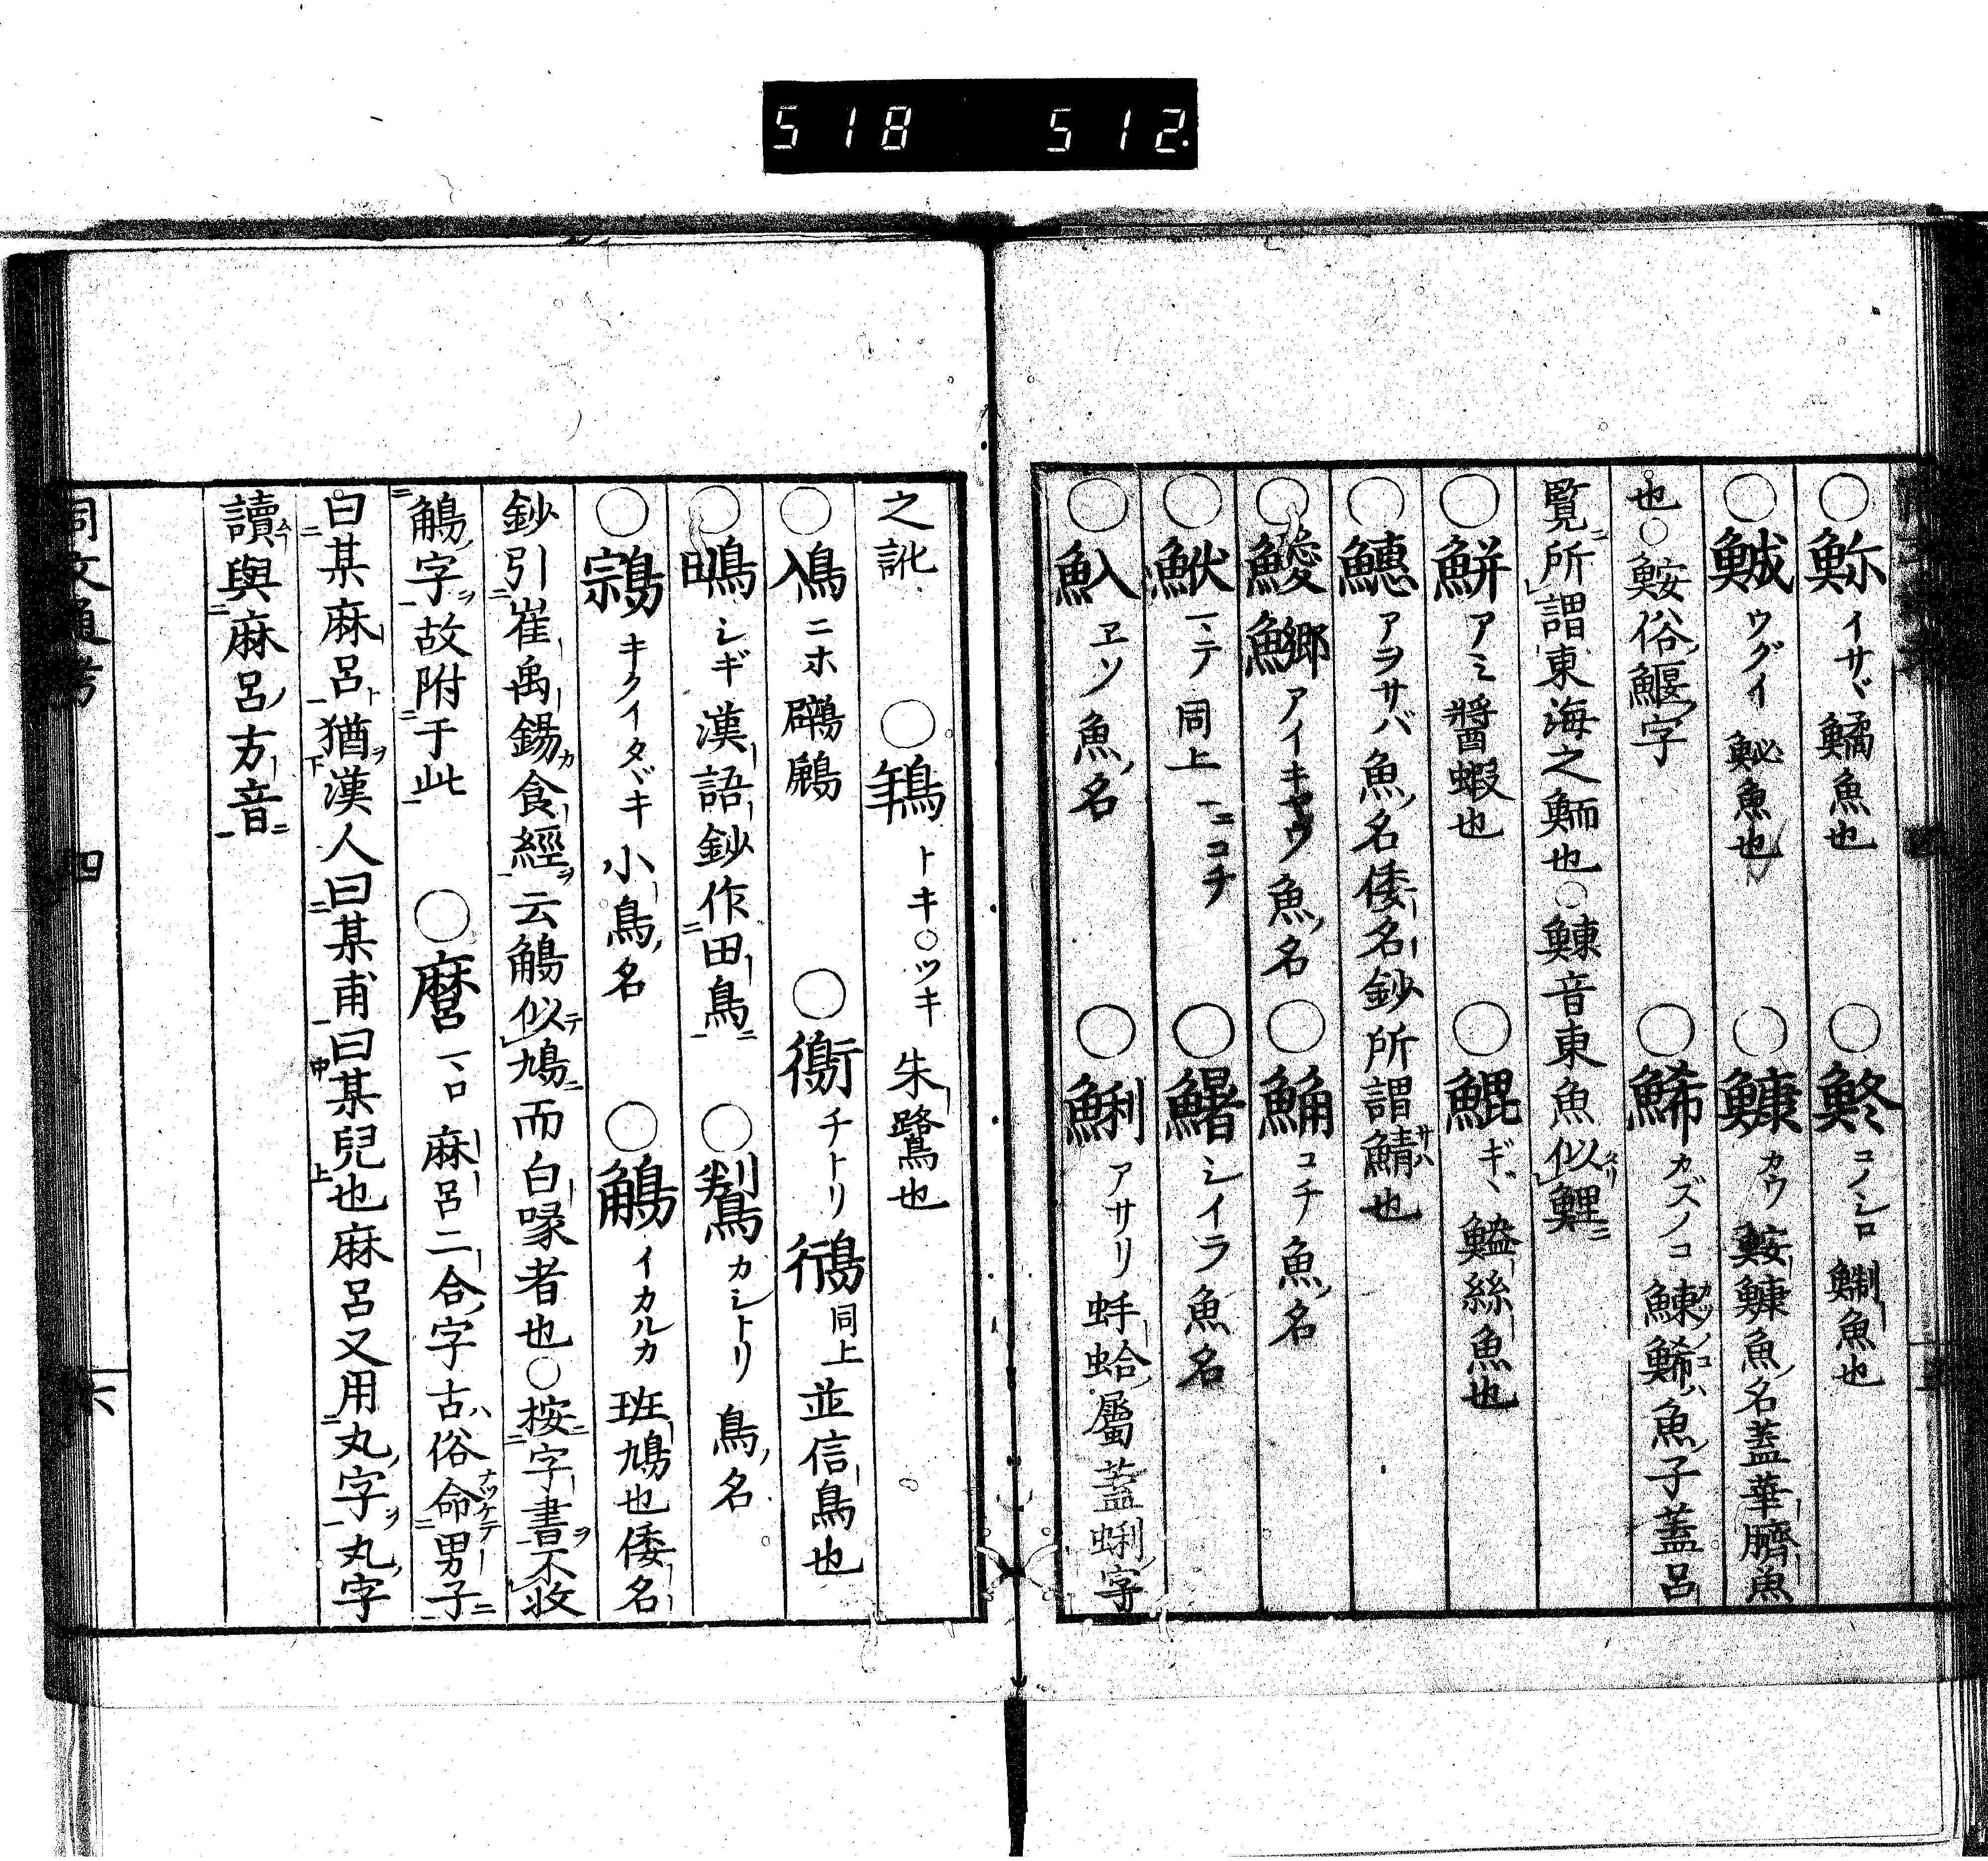 518 512.
○鮴イサヾ鱊魚也 ○鮗コノシロ鯯魚也
○鯎ウグイ𩶫魚也 ○鱇カウ鮟鱇魚名蓋華臍魚
也○鮟俗鰋字 ○鯑カズノコ鰊鯑ハ魚子蓋呂
覧所謂東海之鮞也○鰊音東魚似鯉
○鮩アミ醤蝦也 ○鯤ギヾ䱻絲魚也
○鏸アヲサバ魚名倭名鈔所謂鯖也
アイキヤウ魚名 ○鯒コチ魚名
○マテ同上一ニコチ ○シイラ魚名
○魞ヱソ魚名 ○鯏アサリ蚌蛤屬蓋蜊字
之訛 ○トキ○ツキ朱鷺也
○鳰ニホ鸊鷉 ○チトリ同上並信鳥也
○鴫シギ漢語鈔作田鳥 ○カシトリ鳥名
○キクイタヾキ小鳥名 ○鵤イカルカ班鳩也倭名
鈔引崔禹錫食經云鵤似鳩而白喙者也○按字書不收
鵤字故附于此 ○麿マロ麻呂二合字古俗命男子
曰某麻呂猶漢人曰某甫曰某兒也麻呂又用丸字丸字
讀與麻呂方音
同文通考 四 六